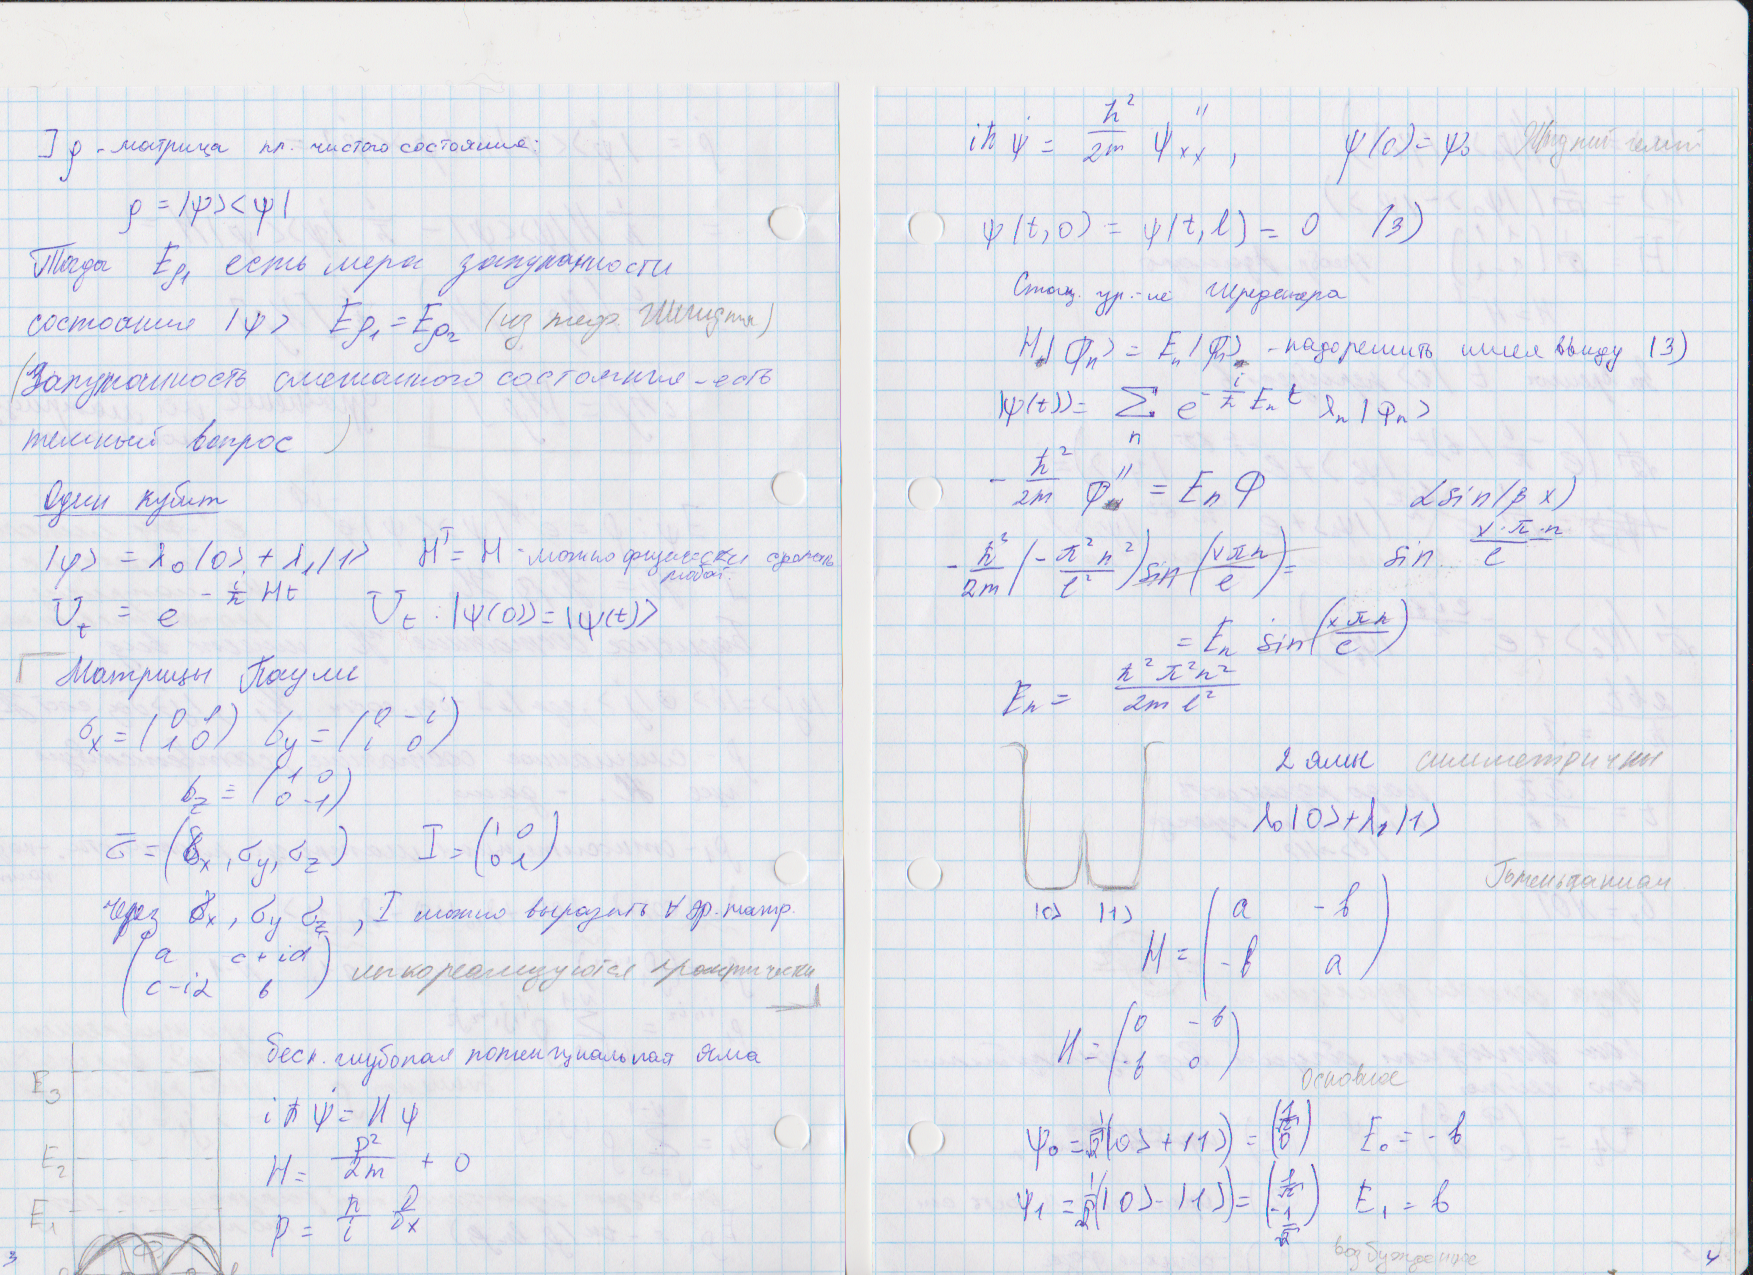 ] ρ - матрица пл. чистого состояния:
ρ = |ψ><ψ|
Тогда Eρ₁ есть мера запутанности
состояния |ψ> Eρ₁ = Eρ₂ (из теор. Шмидта)
(Запутанность смешанного состояния - есть
темный вопрос )
Один кубит
|ψ> = λ₀|0> + λ₁|1> H^T = H - можно физически сделать
любой.
U_t = e^{-i/ħ Ht} U_t : |ψ(0)> = |ψ(t)>
Матрицы Паули
σx = (0 1 / 1 0) σy = (0 -i / i 0)
σz = (1 0 / 0 -1)
σ̄ = (σx, σy, σz) I = (1 0 / 0 1)
через σx, σy σz, I можно выразить ∀ эр. матр.
(a c+id / c-id b) легко реализуются практически
беск. глубокая потенциальная яма
E₃
iħ ψ̇ = H ψ
E₂
H = p²/2m + 0
E₁
p = ħ/i ∂/∂x
3
iħ ψ̇ = ħ²/2m ψ''xx , ψ(0) = ψ₀ Жидкий гелий
ψ(t,0) = ψ(t,l) = 0 (3)
Стац. ур.-ие Шредингера
H|φn> = En|φn> - надо решить имея ввиду (3)
|ψ(t)> = Σn e^{-i/ħ En t} λn |φn>
- ħ²/2m φ''x = En φ α sin(β x)
- ħ²/2m (- π²n²/l²) sin(xπn/l) = sin x·π·n/l
= En sin(xπn/l)
En = ħ²π²n²/2m l²
2 ямы симметричны
λ₀|0> + λ₁|1>
Гамильтониан
|0> |1>
H = (a -b / -b a)
H = (0 -b / -b 0)
основное
ψ₀ = 1/√2(|0> + |1>) = (1/√2 / 0) E₀ = -b
ψ₁ = 1/√2(|0> - |1>) = (1/√2 / -1/√2) E₁ = b
возбужденное
4